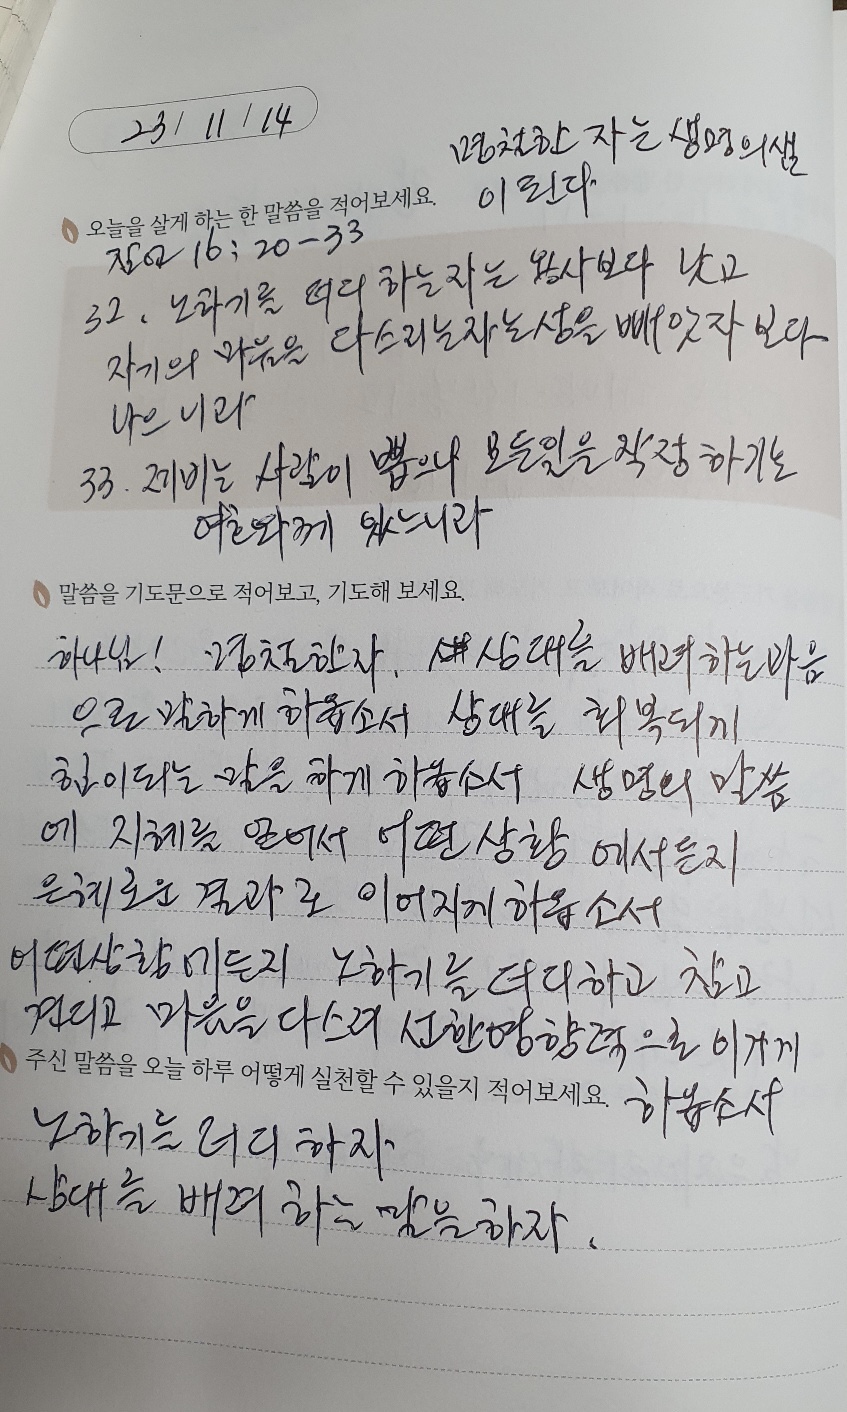 23 / 11 / 14
명철한 자는 생명의 샘
이 된다
오늘을 살게 하는 한 말씀을 적어보세요.
잠언 16 : 20 - 33
32. 노하기를 더디 하는자는 용사보다 낫고
자기의 마음을 다스리는자는 성을 빼앗자 보다
나으니라
33. 제비는 사람이 뽑으나 모든일을 작정 하기는
여호와께 있느니라
말씀을 기도문으로 적어보고, 기도해 보세요.
하나님! 명철한자. 상대를 배려하는마음
으로 말하게 하옵소서 상대를 회복되게
힘이되는 말을 하게 하옵소서 생명의 말씀
에 지혜를 얻어서 어떤 상황 에서든지
은혜로운 결과로 이어지게 하옵소서
어떤상황에든지 노하기를 더디하고 참고
견디고 마음을 다스려 선한영향력으로 이기게
하옵소서
주신 말씀을 오늘 하루 어떻게 실천할 수 있을지 적어보세요.
노하기를 더디 하자
상대를 배려 하는 말을 하자.